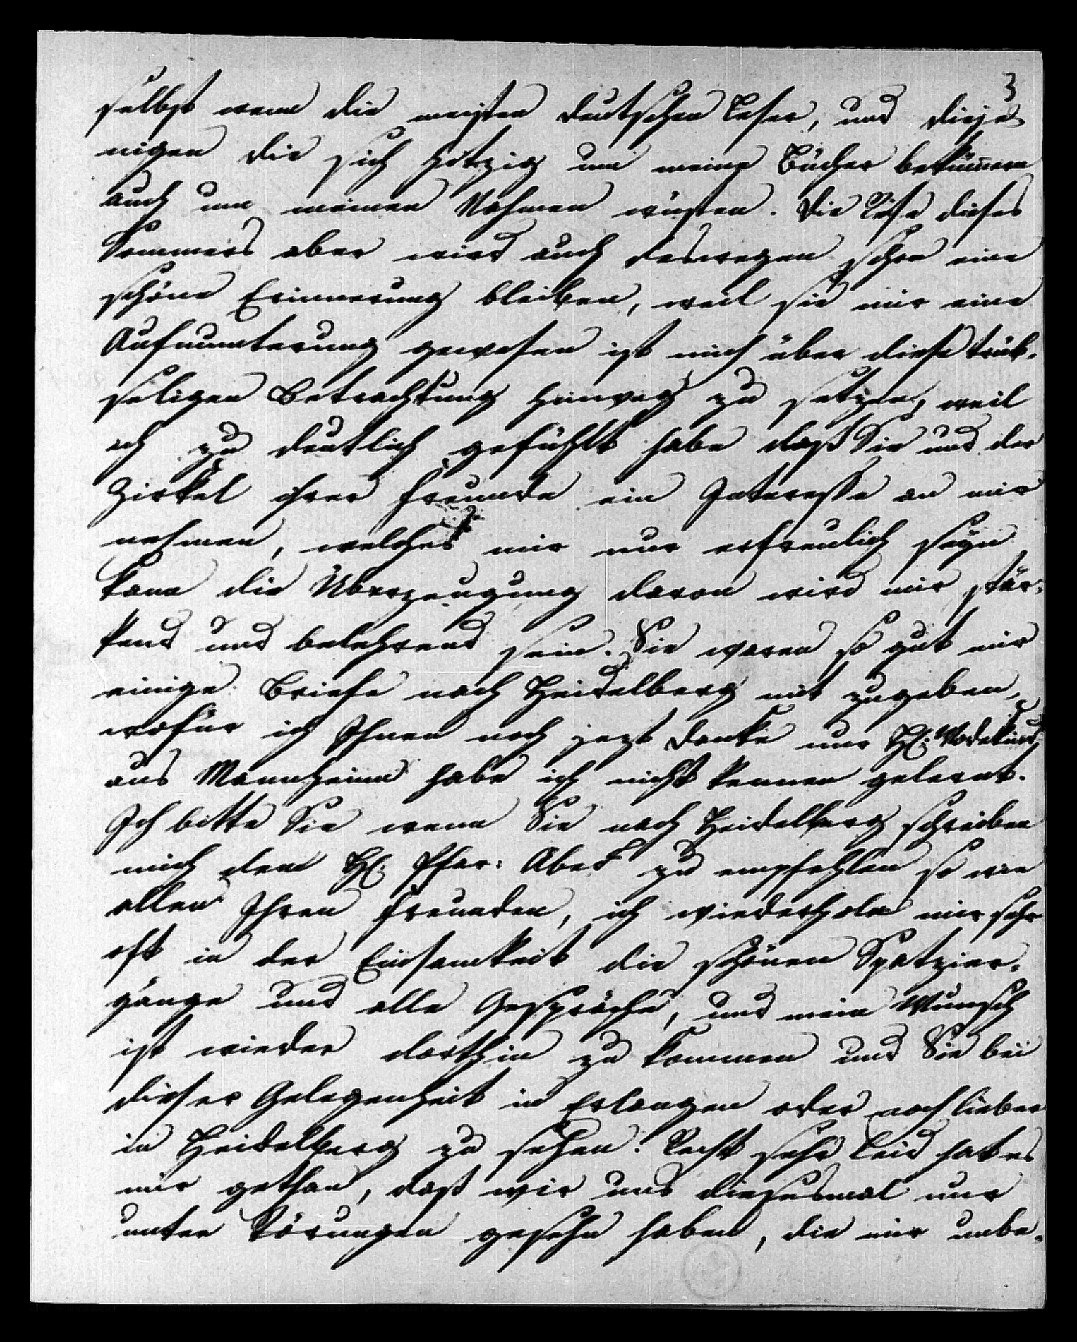 3
selbst wenn die meisten deutschen Leser, und dieje
nigen die sich hitzig um meine Bücher bekümmern
auch um meinen Nahmen wüsten. Die Reise dieses
Sommers aber wird auch deswegen schon eine
schöne Erinnerung bleiben, weil sie mir eine
Aufmunterung gewesen ist mich über diese trüb-
seligen Betrachtung hinweg zu setzen, weil
ich zu deutlich gefühlt habe daß Sie und der
Zirkel ihrer Freunde ein Interesse an mir
nehmen, welches mir nur erfreulich seyn
kann die Überzeugung davon wird mir stär-
kend und belehrend sein. Sie waren so gut mir
einige Briefe nach Heidelberg mit zugeben,
wofür ich Ihnen noch jezt danke nur H.
aus Mannheim habe ich nicht kennen gelernt.
Ich bitte Sie wenn Sie nach Heidelberg schreiben
mich dem H. Pfar: Abeg zu empfehlen so wie
allen Ihren Freunden, ich wiederhole mir sehr
oft in der Einsamkeit die schönen Spatzier-
gänge und alle Gespräche, und mein Wunsch
ist wieder dorthin zu kommen und Sie bei
dieser Gelegenheit in Erlangen oder noch lieber
in Heidelberg zu sehen. Recht sehr Leid hat es
mir gethan, daß wir uns diesesmal nur
unter Störungen gesehn haben, die mir unbe-